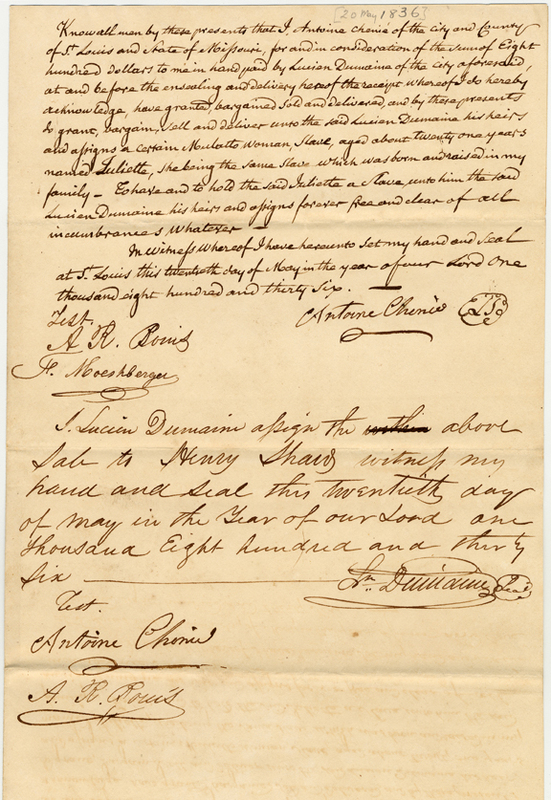 [20 May, 1836]
Know all men by these presents that I, Antoine Chenie of the City and County
of St. Louis and State of Missouri, for and in consideration of the sum of Eight
hundred dollars to me in hand paid by Lucien Dumaine of the City aforesaid,
at and before the ensealing and delivery hereof the receipt whereof I do hereby
acknowledge, have granted, bargained sold and delivered and by these presents
do grant, bargain, sell and deliver unto the said Lucien Dumaine his heirs
and assigns a certain Mulatto Woman, Slave, aged about twenty one years
named Juliette, She being the same Slave which was born and raised in my
family – To have and to hold the said Juliette a Slave, unto him the said
Lucien Dumaine his heirs and assigns forever free and clear of all
incumbrances whatever –
In Witness Whereof I have hereunto set my hand and Seal
at St. Louis this twentieth day of May in the year of our Lord One
thousand eight hundred and thirty Six. –
Test. Antoine Chenie
A. R. Bouis
F. Moeshberger
I. Lucien Dumaine assign the within above
Sale to Henry Shaw witness my
hand and seal this twentieth day
of May in the Year of our Lord one
thousand Eight hundred and thirty
six Ln. Dumaine Seal
Test.
Antoine Chenie
A. R. Bouis